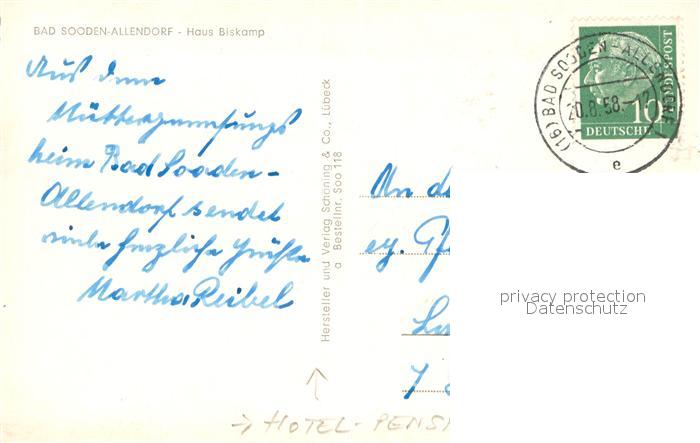 BAD SOODEN-ALLENDORF - Haus Biskamp
Aus dem
Müttergenesungs
heim Bad Sooden-
Allendorf sendet
viele herzliche Grüße
Martha Reibel
Hersteller und Verlag Schöning & Co., Lübeck
a Bestellnr. Soo 118
An
ev.
7
(16) BAD SOODEN-ALLENDORF
20.8.58.-12
e
10
DEUTSCHE
BUNDESPOST
privacy protection
Datenschutz
→ HOTEL-PENSI